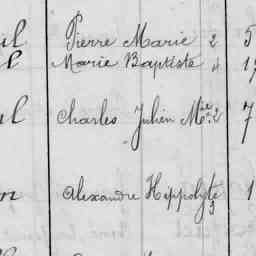 Pierre Marie 2 5
Marie Baptiste 4
Charles Julien Mie 2 7
Alexandre Hippolyte 3 1